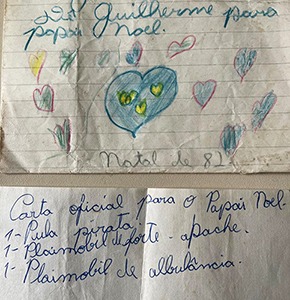 Do Guilherme para
papai Noel.
Natal de 82
Carta oficial para o Papai Noel.
1- Pula pirata.
1- Plaimobil de forte - apache.
1- Plaimobil de albulância.